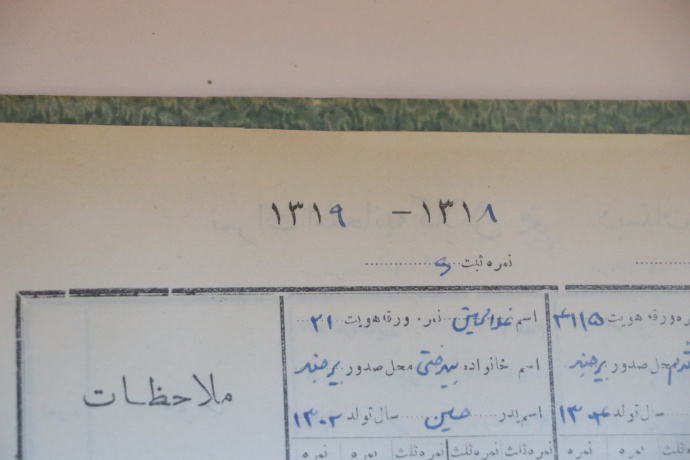 ۱۳۱۸ - ۱۳۱۹
نمره ثبت ۶
اسم غلامحسین نمره ورقه هویت ۲۱
اسم خانواده بیدختی محل صدور بیرجند
اسم پدر حسین سال تولد ۱۳۰۲
ملاحظات
ره ورقه هویت ۴۱۱۵
محل صدور بیرجند
سال تولد ۱۳۰۴
نمره ثلث نمره ثلث نمره ثلث نمره نمره